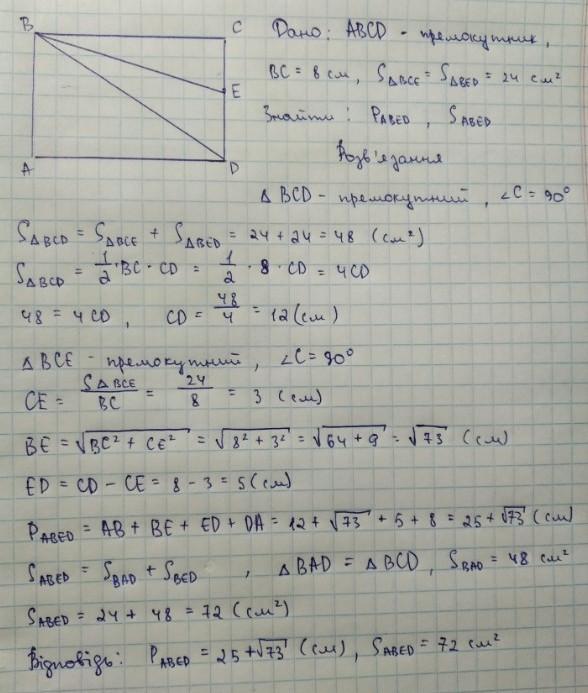 B
C
E
A
D
Дано: ABCD - премокутник,
BC = 8 см, S△BCE = S△BED = 24 см²
Знайти: P_ABED, S_ABED
Розв'язання
△ BCD - премокутний, ∠C = 90°
S△BCD = S△BCE + S△BED = 24 + 24 = 48 (см²)
S△BCD = 1/2 · BC · CD = 1/2 · 8 · CD = 4CD
48 = 4 CD, CD = 48/4 = 12 (см)
△ BCE - премокутний, ∠C = 90°
CE = S△BCE/BC = 24/8 = 3 (см)
BE = √(BC² + CE²) = √(8² + 3²) = √(64 + 9) = √73 (см)
ED = CD - CE = 8 - 3 = 5 (см)
P_ABED = AB + BE + ED + DA = 12 + √73 + 5 + 8 = 25 + √73 (см)
S_ABED = S_BAD + S_BED, △ BAD = △ BCD, S_BAD = 48 см²
S_ABED = 24 + 48 = 72 (см²)
Відповідь: P_ABED = 25 + √73 (см), S_ABED = 72 см²